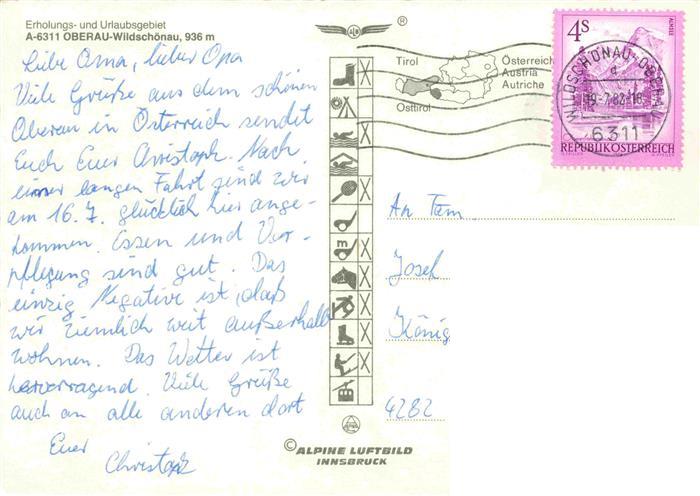 Erholungs- und Urlaubsgebiet
A-6311 OBERAU-Wildschönau, 936 m
Liebe Oma, lieber Opa
Viele Grüße aus dem schönen
Oberau in Österreich sendet
Euch Euer Christoph. Nach
einer langen Fahrt sind wir
am 16.7. glücklich hier ange-
kommen. Essen und Ver-
pflegung sind gut. Das
einzig Negative ist, daß
wir ziemlich weit außerhalb
wohnen. Das Wetter ist
hervorragend. Viele Grüße
auch an alle anderen dort
Euer
Christoph
®
Tirol
Osttirol
Österreich
Austria
Autriche
m
© ALPINE LUFTBILD
INNSBRUCK
4S
ALMSEE
WILDSCHÖNAU-OBERAU
a
19.-7.82-18
6311
REPUBLIK ÖSTERREICH
An Fam.
Josef
König
4282